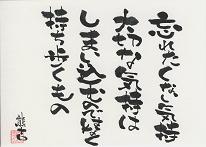 忘れたくない気持
大切な気持は
しまい込むのでなく
持ち歩くもの